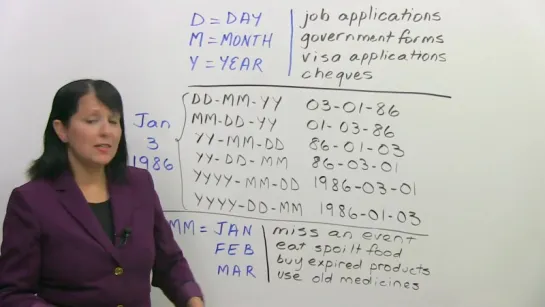 D = DAY
M = MONTH
Y = YEAR
job applications
government forms
visa applications
cheques
Jan
3
1986
DD-MM-YY 03-01-86
MM-DD-YY 01-03-86
YY-MM-DD 86-01-03
YY-DD-MM 86-03-01
YYYY-MM-DD 1986-03-01
YYYY-DD-MM 1986-01-03
MM = JAN
FEB
MAR
miss an event
eat spoilt food
buy expired products
use old medicines